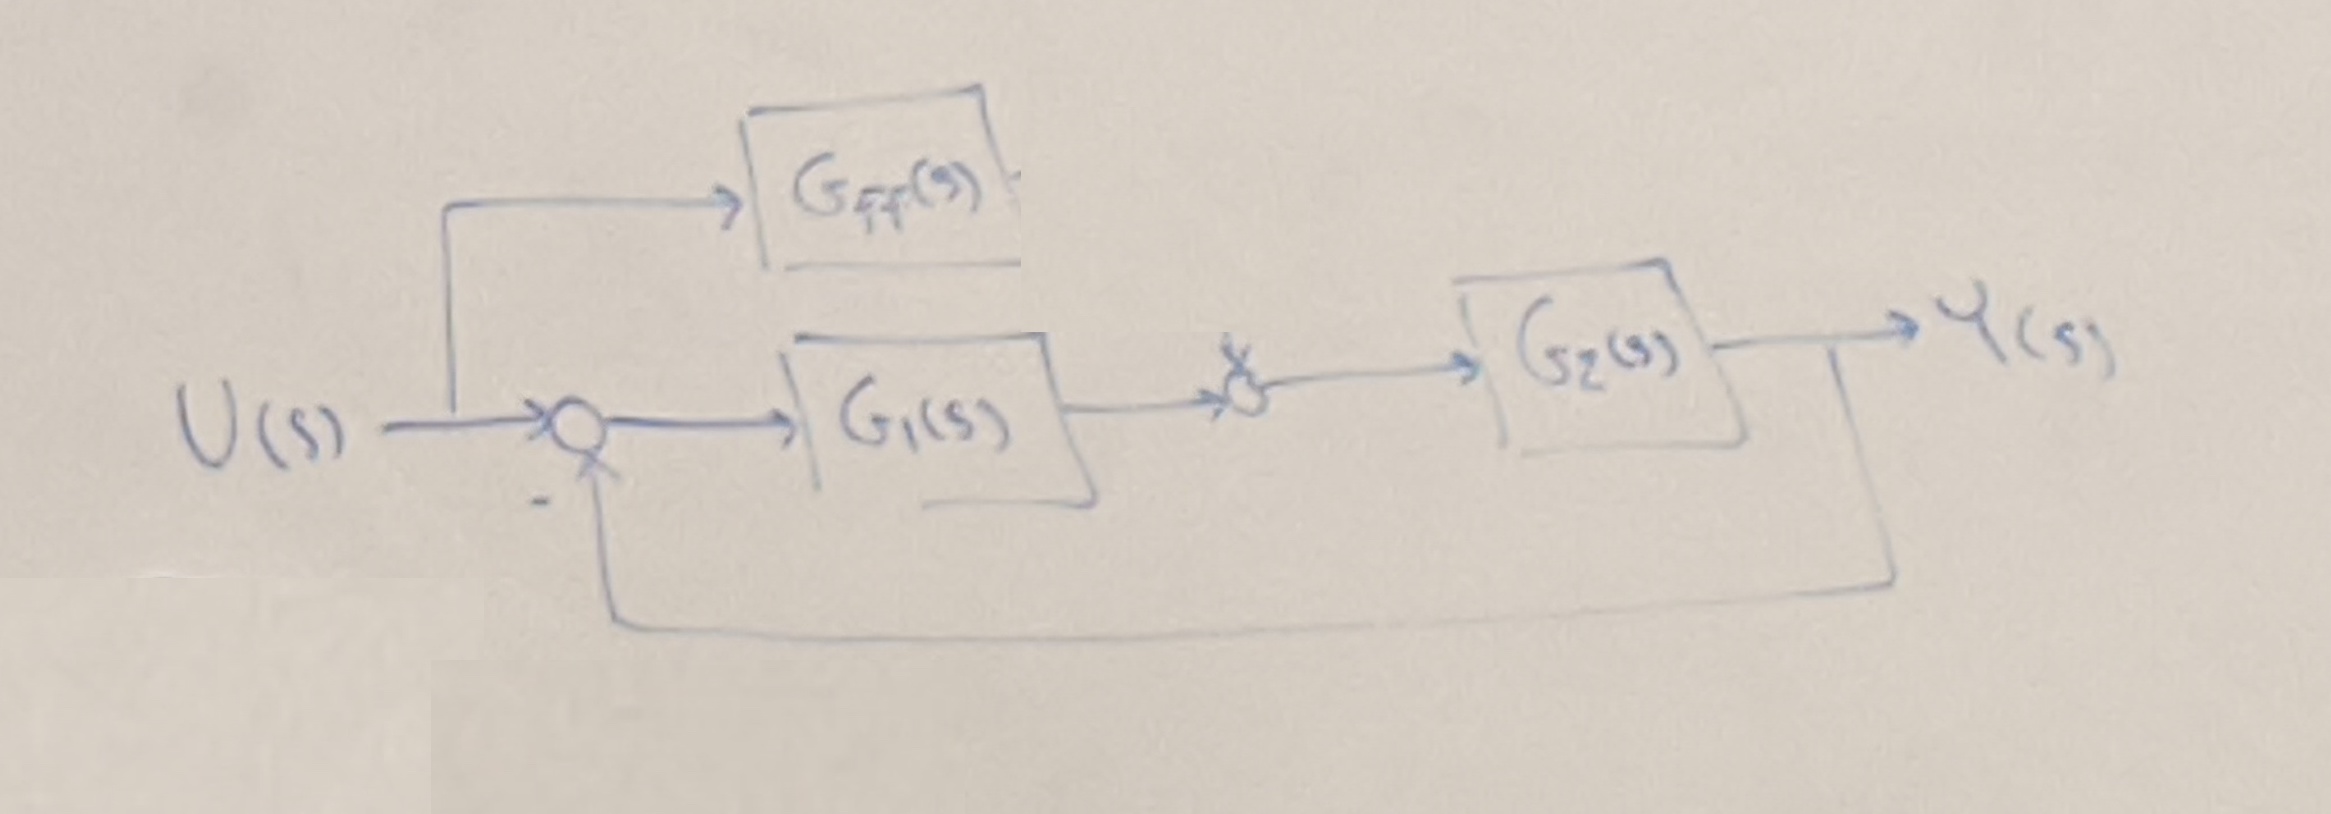 Gff(s)
U(s)
-
G1(s)
G2(s)
Y(s)